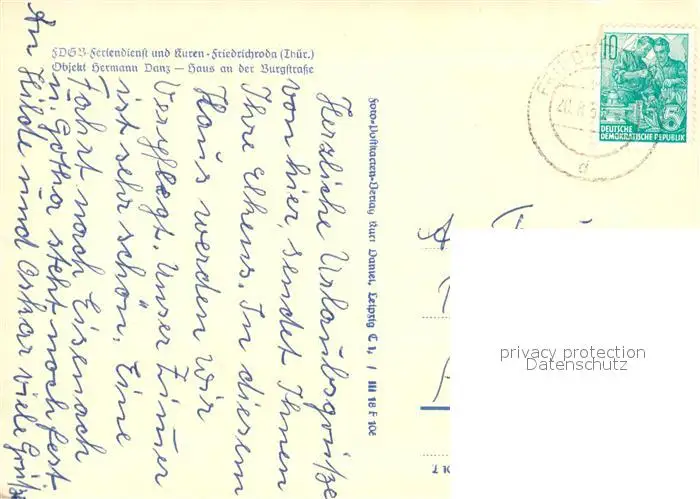 FDGB-Feriendienst und Kuren - Friedrichroda (Thür.)
Objekt Hermann Danz — Haus an der Burgstraße
Herzliche Urlaubsgrüße
von hier, sendet Ihnen
Ihre Ehens. In diesem
Haus werden wir
verpflegt. Unser Zimmer
ist sehr schön. Eine
Fahrt nach Eisenach
u. Gotha steht noch fest
An Hilde und Oskar viele Grüße
Foto-Postkarten-Verlag Kurt Daniel, Leipzig C 1, / III 18 F 106
10
5
DEUTSCHE
DEMOKRATISCHE REPUBLIK
d
A
privacy protection
Datenschutz